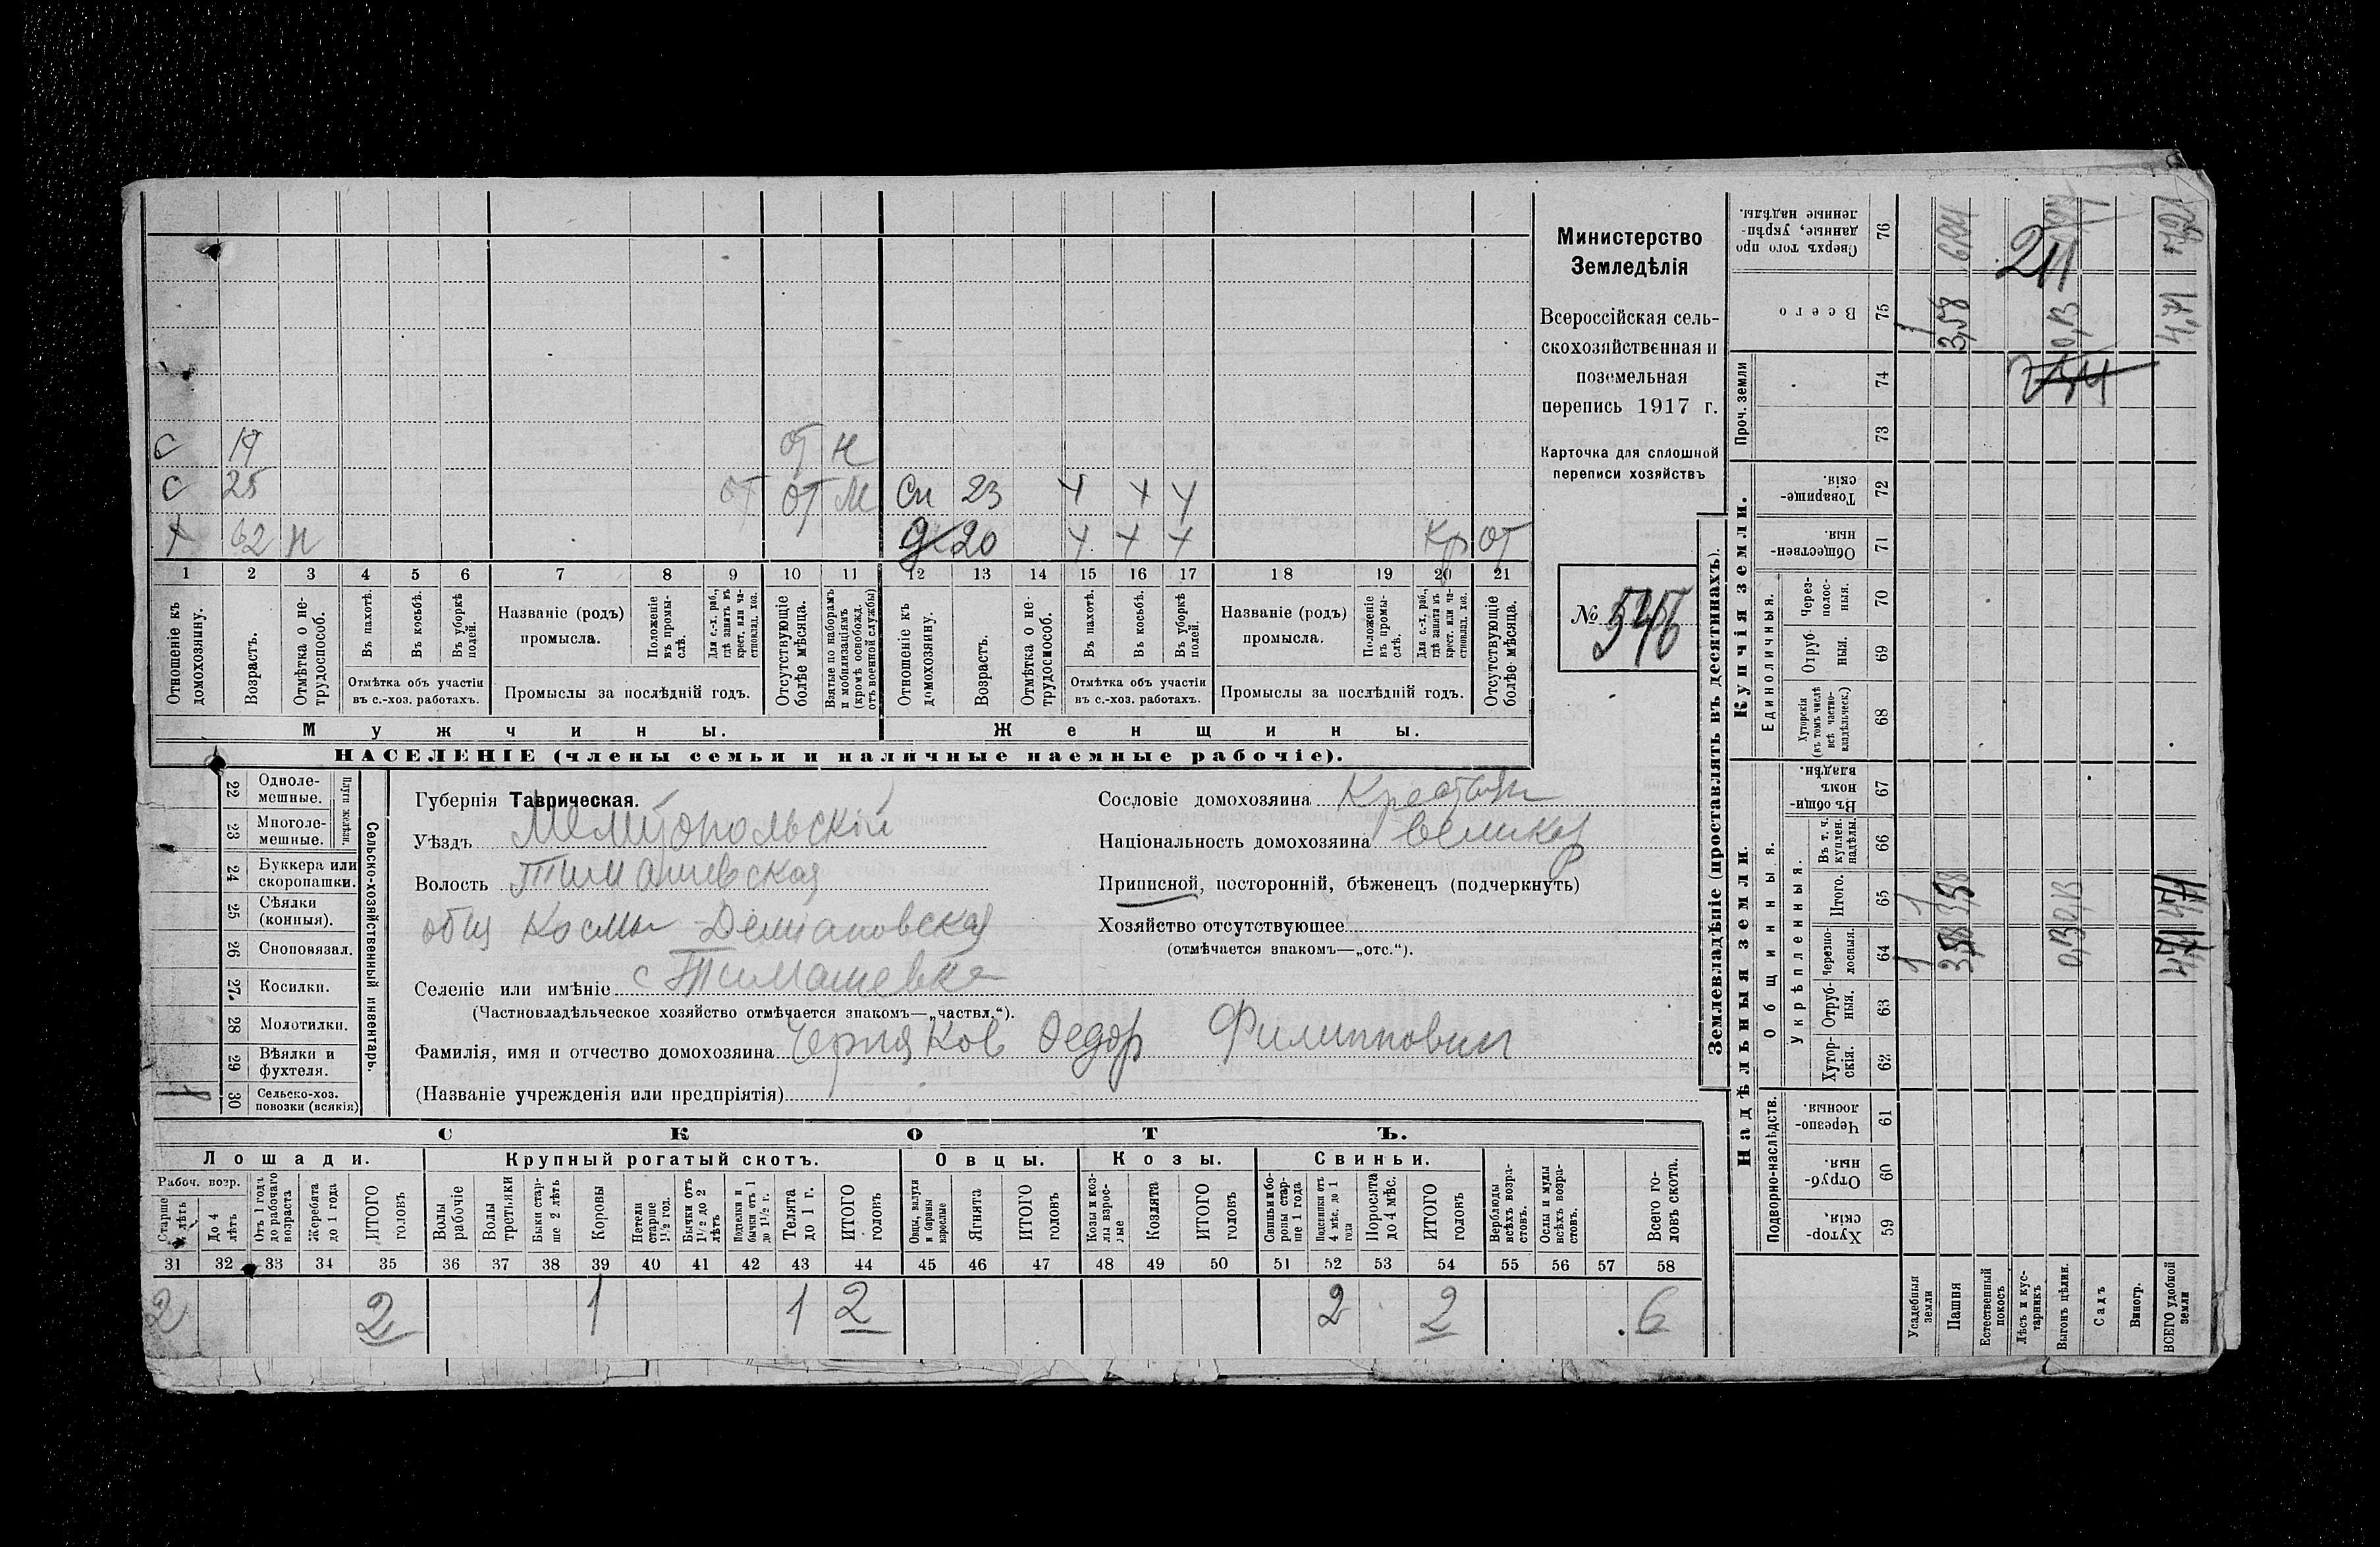 Министерство
Земледѣлія
Всероссійская сель-
скохозяйственная и
поземельная
перепись 1917 г.
Карточка для сплошной
переписи хозяйствъ
№
С 19 от н
С 25 от от м Сн 23 х х х
х 62 н 20 х х х Кр от
1 2 3 4 5 6 7 8 9 10 11 12 13 14 15 16 17 18 19 20 21
Отношеніе къ домохозяину.
Возрастъ.
Отмѣтка о не-трудоспособ.
Въ пахотѣ.
Въ косьбѣ.
Въ уборкѣ полей.
Отмѣтка объ участіи
въ с.-хоз. работахъ.
Названіе (родъ)
промысла.
Положеніе въ промы-слѣ.
Для с.-х. раб., гдѣ занятъ въ крест. или ча-стновлад. хоз.
Промыслы за послѣдній годъ.
Отсутствующіе болѣе мѣсяца.
Взятые по наборамъ и мобилизаціямъ (кромѣ освобожд. отъ военной службы)
Отношеніе къ домохозяину.
Возрастъ.
Отмѣтка о не-трудоспособ.
Въ пахотѣ.
Въ косьбѣ.
Въ уборкѣ полей.
Отмѣтка объ участіи
въ с.-хоз. работахъ.
Названіе (родъ)
промысла.
Положеніе въ промы-слѣ.
Для с.-х. раб., гдѣ занята въ крест. или ча-стновлад. хоз.
Промыслы за послѣдній годъ.
Отсутствующіе болѣе мѣсяца.
Мужчины. Женщины.
НАСЕЛЕНІЕ (члены семьи и наличные наемные рабочіе).
22 Одноле-мешные.
23 Многоле-мешные.
Плуги желѣзн.
24 Буккера или скоропашки.
25 Сѣялки (конныя).
26 Сноповязал.
27 Косилки.
28 Молотилки.
29 Вѣялки и фухтеля.
1 30 Сельско-хоз. повозки (всякія)
Сельско-хозяйственный инвентарь.
Губернія Таврическая.
Уѣздъ Мелитопольскій
Волость Тимашевская
общ Космы-Деміановская
Селеніе или имѣніе с Тимашевка
(Частновладѣльческое хозяйство отмѣчается знакомъ—„частвл.“).
Фамилія, имя и отчество домохозяина Черняков Федор Филиппович
(Названіе учрежденія или предпріятія)
Сословіе домохозяина Крестьян
Національность домохозяина великор
Приписной, посторонній, бѣженецъ (подчеркнуть)
Хозяйство отсутствующее
(отмѣчается знакомъ—„отс.“).
СКОТЪ.
Лошади. Крупный рогатый скотъ. Овцы. Козы. Свиньи.
Рабоч. возр.
Старше 4 лѣтъ
До 4 лѣтъ
Отъ 1 года до рабочаго возраста
Жеребята до 1 года
ИТОГО головъ
Волы рабочіе
Волы третьяки
Быки стар-ше 2 лѣтъ
Коровы
Нетели старше 1½ год.
Бычки отъ 1½ до 2 лѣтъ
Подтелки и бычки отъ 1 до 1½ г.
Телята до 1 г.
ИТОГО головъ
Овцы, валухи и бараны взрослые
Ягнята
ИТОГО головъ
Козы и коз-лы взрос-лые
Козлята
ИТОГО головъ
Свиньи и бо-ровы стар-ше 1 года
Подсвинки отъ 4 мѣс. до 1 года
Поросята до 4 мѣс.
ИТОГО головъ
Верблюды всѣхъ возра-стовъ.
Ослы и мулы всѣхъ возра-стовъ.
Всего го-ловъ скота.
31 32 33 34 35 36 37 38 39 40 41 42 43 44 45 46 47 48 49 50 51 52 53 54 55 56 57 58
2 2 1 1 2 2 2 6
Землевладѣніе (проставлять въ десятинахъ).
Надѣльныя земли. Купчія земли. Проч. земли
Подворно-наслѣдств.
Общинныя.
Укрѣпленныя.
Единоличныя.
Хутор-скія, 59
Отруб-ныя. 60
Черезпо-лосныя. 61
Хутор-скія. 62
Отруб-ныя. 63
Черезпо-лосныя. 64
Итого. 65
Въ т. ч. куплен. надѣлы. 66
Въ общи-номъ владѣн. 67
Хуторскія (въ томъ числѣ всѣ частно-владѣльческ.) 68
Отруб-ныя. 69
Через-полос-ныя. 70
Обществен-ныя. 71
Товарище-скія. 72
73
74
Всего 75
Сверхъ того про данные, укрѣп-ленные надѣлы. 76
Усадебныя земли 1 1 1
Пашня 3,58 3,58 3,58
Естественный покосъ
Лѣсъ и кус-тарникъ
Выгонъ цѣлин. 0,13 0,13 0,13
Садъ
Виногр.
ВСЕГО удобной земли
211